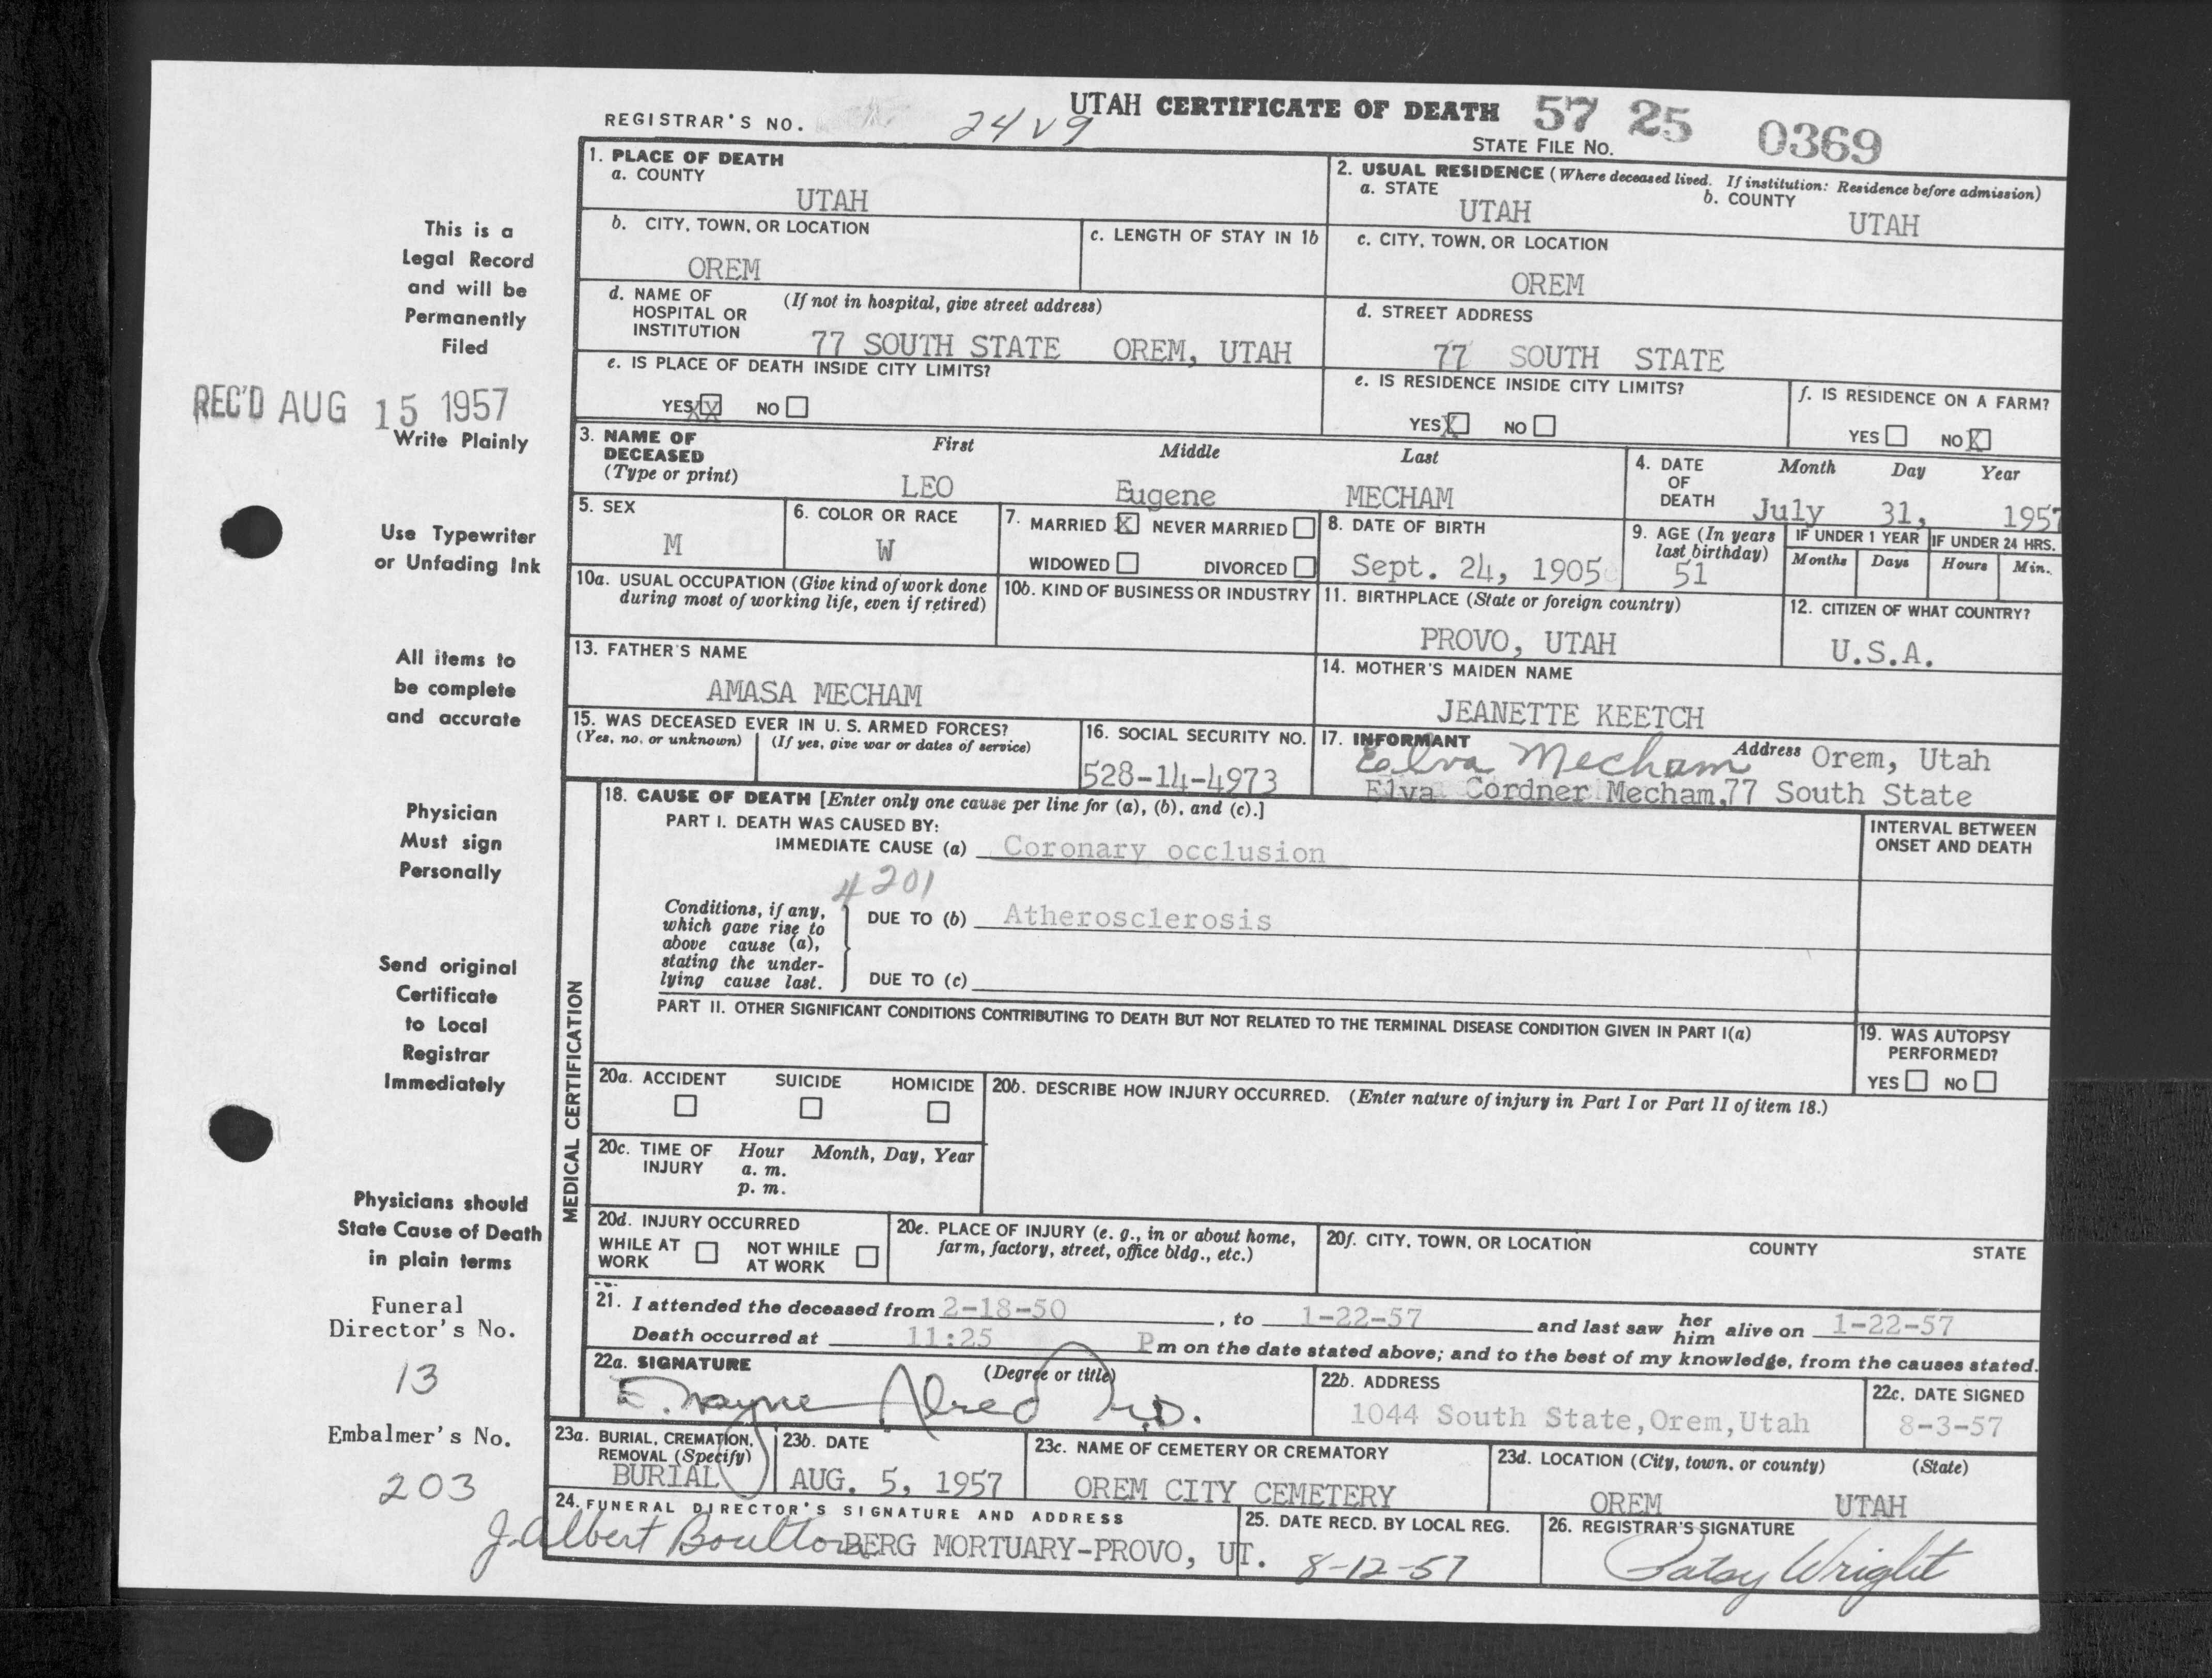 UTAH CERTIFICATE OF DEATH 57 25 0369
REGISTRAR'S NO. 24 V 9
STATE FILE NO.
1. PLACE OF DEATH
a. COUNTY
UTAH
2. USUAL RESIDENCE (Where deceased lived. If institution: Residence before admission)
a. STATE b. COUNTY
UTAH UTAH
b. CITY, TOWN, OR LOCATION
OREM
c. LENGTH OF STAY IN 1b
c. CITY, TOWN, OR LOCATION
OREM
d. NAME OF HOSPITAL OR INSTITUTION (If not in hospital, give street address)
77 SOUTH STATE OREM, UTAH
d. STREET ADDRESS
77 SOUTH STATE
e. IS PLACE OF DEATH INSIDE CITY LIMITS?
YES XX NO
e. IS RESIDENCE INSIDE CITY LIMITS?
YES X NO
f. IS RESIDENCE ON A FARM?
YES NO X
3. NAME OF DECEASED (Type or print)
First Middle Last
LEO Eugene MECHAM
4. DATE OF DEATH
Month Day Year
July 31, 1957
5. SEX
M
6. COLOR OR RACE
W
7. MARRIED X NEVER MARRIED
WIDOWED DIVORCED
8. DATE OF BIRTH
Sept. 24, 1905
9. AGE (In years last birthday)
51
IF UNDER 1 YEAR IF UNDER 24 HRS.
Months Days Hours Min.
10a. USUAL OCCUPATION (Give kind of work done during most of working life, even if retired)
10b. KIND OF BUSINESS OR INDUSTRY
11. BIRTHPLACE (State or foreign country)
PROVO, UTAH
12. CITIZEN OF WHAT COUNTRY?
U.S.A.
13. FATHER'S NAME
AMASA MECHAM
14. MOTHER'S MAIDEN NAME
JEANETTE KEETCH
15. WAS DECEASED EVER IN U. S. ARMED FORCES?
(Yes, no, or unknown) (If yes, give war or dates of service)
16. SOCIAL SECURITY NO.
528-14-4973
17. INFORMANT Address
Elva Mecham Orem, Utah
Elva Cordner Mecham,77 South State
MEDICAL CERTIFICATION
18. CAUSE OF DEATH [Enter only one cause per line for (a), (b), and (c).]
PART I. DEATH WAS CAUSED BY:
IMMEDIATE CAUSE (a) Coronary occlusion
INTERVAL BETWEEN ONSET AND DEATH
4201
Conditions, if any, which gave rise to above cause (a), stating the underlying cause last.
DUE TO (b) Atherosclerosis
DUE TO (c)
PART II. OTHER SIGNIFICANT CONDITIONS CONTRIBUTING TO DEATH BUT NOT RELATED TO THE TERMINAL DISEASE CONDITION GIVEN IN PART I(a)
19. WAS AUTOPSY PERFORMED?
YES NO
20a. ACCIDENT SUICIDE HOMICIDE
20b. DESCRIBE HOW INJURY OCCURRED. (Enter nature of injury in Part I or Part II of item 18.)
20c. TIME OF INJURY
Hour Month, Day, Year
a. m.
p. m.
20d. INJURY OCCURRED
WHILE AT WORK NOT WHILE AT WORK
20e. PLACE OF INJURY (e. g., in or about home, farm, factory, street, office bldg., etc.)
20f. CITY, TOWN, OR LOCATION COUNTY STATE
21. I attended the deceased from 2-18-50, to 1-22-57 and last saw her him alive on 1-22-57
Death occurred at 11:25 P m on the date stated above; and to the best of my knowledge, from the causes stated.
22a. SIGNATURE (Degree or title)
E. Wayne Alred M.D.
22b. ADDRESS
1044 South State,Orem,Utah
22c. DATE SIGNED
8-3-57
23a. BURIAL, CREMATION, REMOVAL (Specify)
BURIAL
23b. DATE
AUG. 5, 1957
23c. NAME OF CEMETERY OR CREMATORY
OREM CITY CEMETERY
23d. LOCATION (City, town, or county) (State)
OREM UTAH
24. FUNERAL DIRECTOR'S SIGNATURE AND ADDRESS
J. Albert Boulton BERG MORTUARY-PROVO, UT.
25. DATE RECD. BY LOCAL REG.
8-12-57
26. REGISTRAR'S SIGNATURE
Patsy Wright
This is a
Legal Record
and will be
Permanently
Filed
REC'D AUG 15 1957
Write Plainly
Use Typewriter
or Unfading Ink
All items to
be complete
and accurate
Physician
Must sign
Personally
Send original
Certificate
to Local
Registrar
Immediately
Physicians should
State Cause of Death
in plain terms
Funeral
Director's No.
13
Embalmer's No.
203